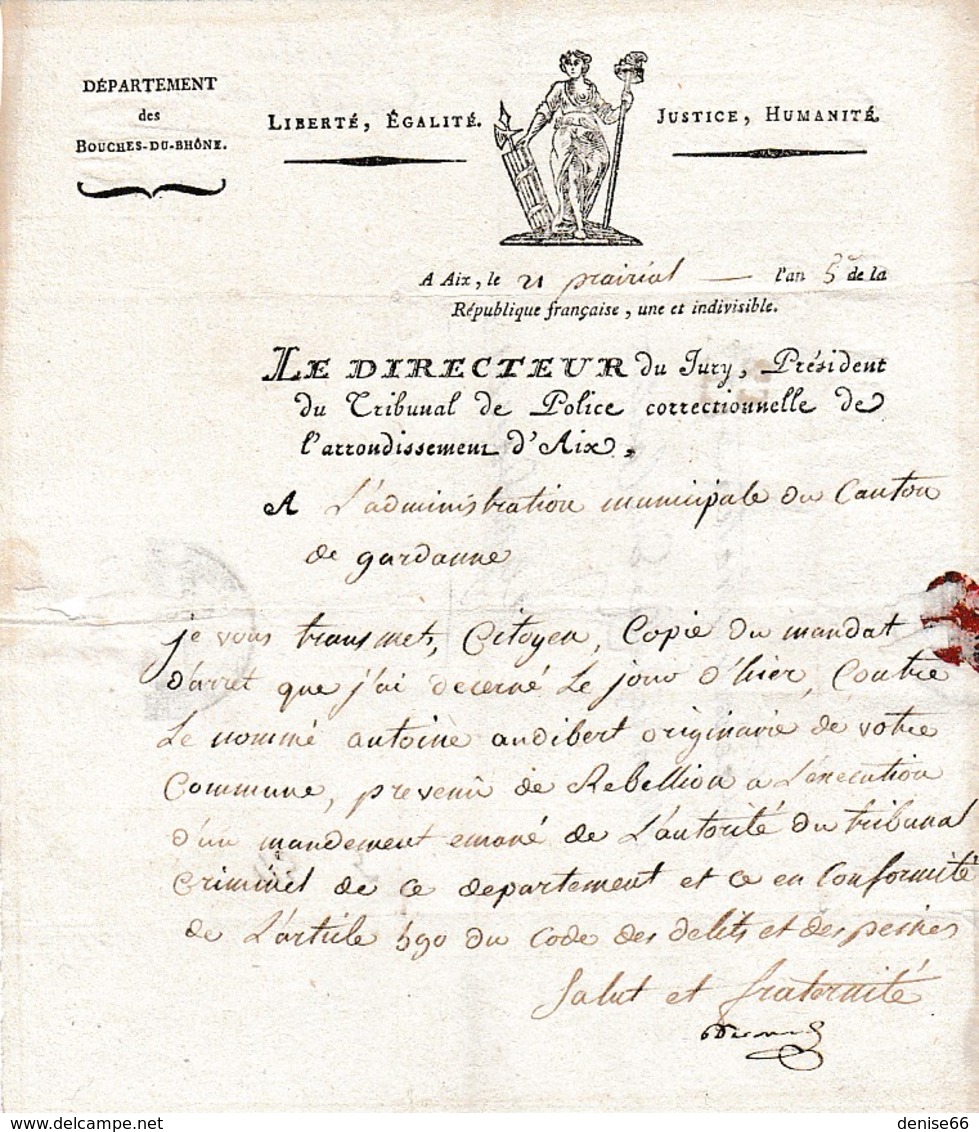 DÉPARTEMENT
des
BOUCHES-DU-RHÔNE.
LIBERTÉ, ÉGALITÉ.
JUSTICE, HUMANITÉ.
A Aix, le 21 prairial l'an 5e de la
République française, une et indivisible.
LE DIRECTEUR du Jury, Président
du Tribunal de Police correctionnelle de
l'arrondissement d'Aix,
A L'administration municipale du Canton
de gardanne
je vous transmets, Citoyen, Copie du mandat
d'arret que j'ai decerné Le jour d'hier, Contre
Le nommé antoine audibert originaire de votre
Commune, prevenu de Rebellion a L'execution
d'un mandement emané de L'autorité du tribunal
Criminel de ce departement et ce en Conformité
de L'article 590 du Code des delits et des peines
Salut et fraternité
denise66